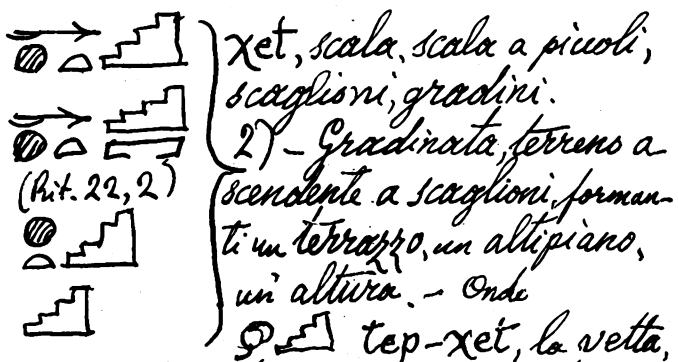 χet, scala, scala a piccoli,
scaglioni, gradini.
2) – Gradinata, terreno a
(Rit. 22, 2)
scendente a scaglioni, forman-
ti un terrazzo, un altipiano,
un'altura. – Onde
tep-χet, la vetta,